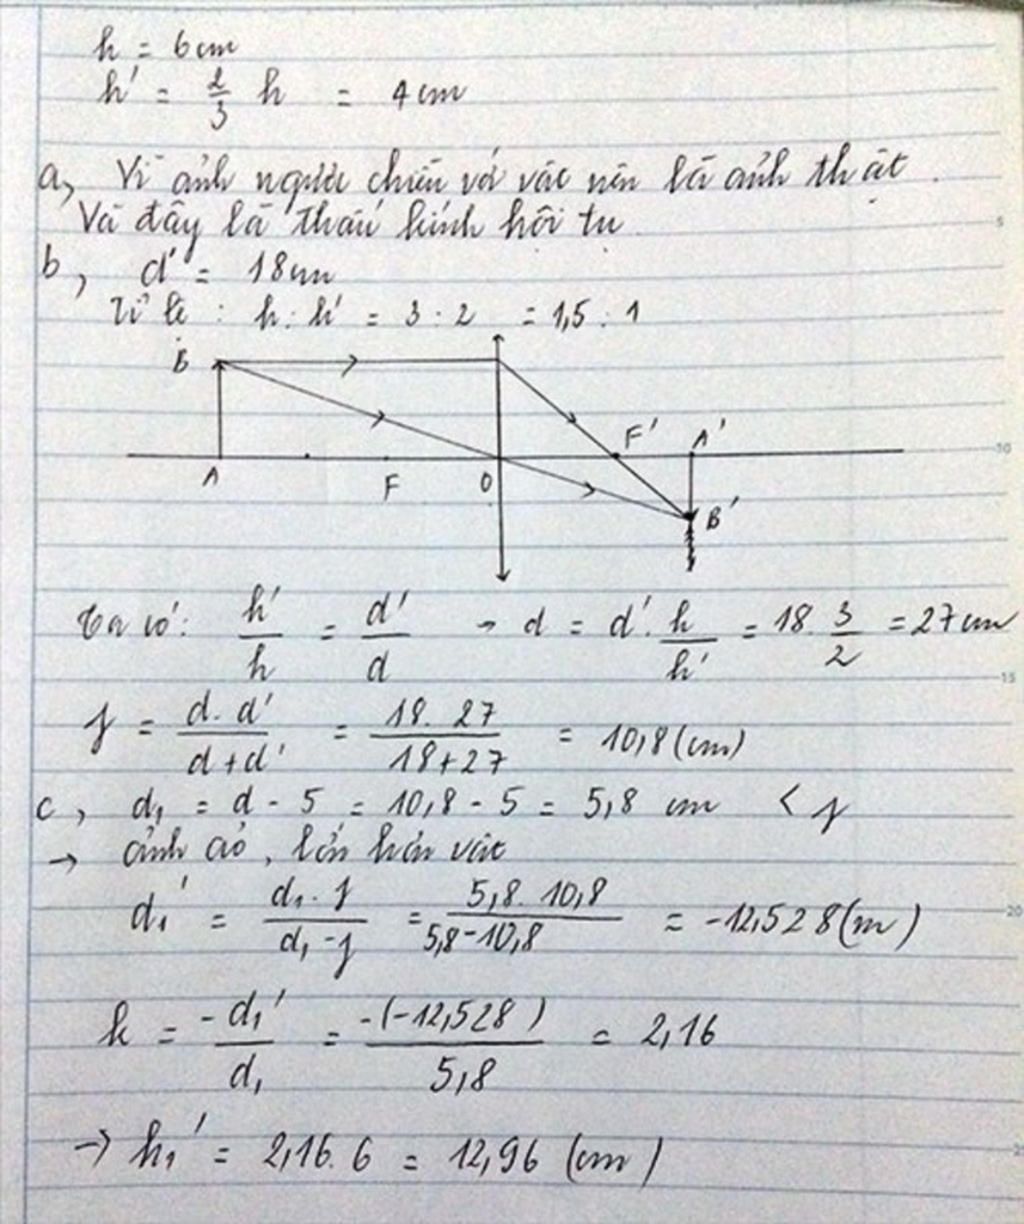 h = 6cm
h' = 2/3 h = 4cm
a, Vì ảnh ngược chiều với vật nên là ảnh thật.
Và đây là thấu kính hội tụ.
b, d' = 18cm
Tỉ lệ : h : h' = 3 : 2 = 1,5 : 1
B
F' A'
A F O
B'
Ta có: h'/h = d'/d → d = d' . h/h' = 18 . 3/2 = 27cm
f = d . d'/d + d' = 18 . 27/18 + 27 = 10,8 (cm)
c, d₁ = d - 5 = 10,8 - 5 = 5,8 cm < f
→ ảnh ảo, lớn hơn vật
d₁' = d₁ . f/d₁ - f = 5,8 . 10,8/5,8 - 10,8 = -12,528 (m)
k = -d₁'/d₁ = -(-12,528)/5,8 = 2,16
→ h₁' = 2,16 . 6 = 12,96 (cm)
5
10
15
20